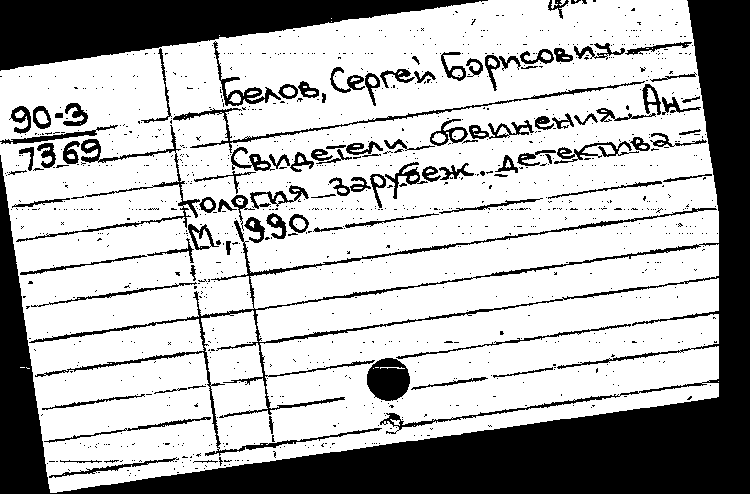 Белов, Сергей Борисович.
90-3
7369
Свидетели обвинения: Ан-
тология зарубеж. детектива. –
М., 1990.